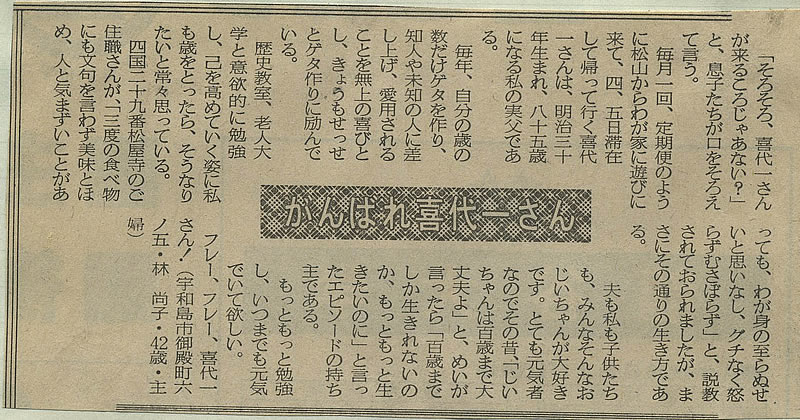 がんばれ喜代一さん
「そろそろ、喜代一さん
が来るころじゃあない？」
と、息子たちが口をそろえ
て言う。
毎月一回、定期便のよう
に松山からわが家に遊びに
来て、四、五日滞在
して帰って行く喜代
一さんは、明治三十
年生まれ、八十五歳
になる私の実父であ
る。
毎年、自分の歳の
数だけゲタを作り、
知人や未知の人に差
し上げ、愛用される
ことを無上の喜びと
し、きょうもせっせ
とゲタ作りに励んで
いる。
歴史教室、老人大
学と意欲的に勉強
し、己を高めていく姿に私
も歳をとったら、そうなり
たいと常々思っている。
四国二十九番松屋寺のご
住職さんが、「三度の食べ物
にも文句を言わず美味とほ
め、人と気まずいことがあ
っても、わが身の至らぬせ
いと思いなし、グチなく怒
らずむさぼらず」と、説教
されておられましたが、ま
さにその通りの生き方であ
る。
夫も私も子供たち
も、みんなそんなお
じいちゃんが大好き
です。とても元気者
なのでその昔、「じい
ちゃんは百歳まで大
丈夫よ」と、めいが
言ったら「百歳まで
しか生きれないの
か、もっともっと生
きたいのに」と言っ
たエピソードの持ち
主である。
もっともっと勉強
し、いつまでも元気
でいて欲しい。
フレー、フレー、喜代一
さん！（宇和島市御殿町六
ノ五・林　尚子・42歳・主
婦）